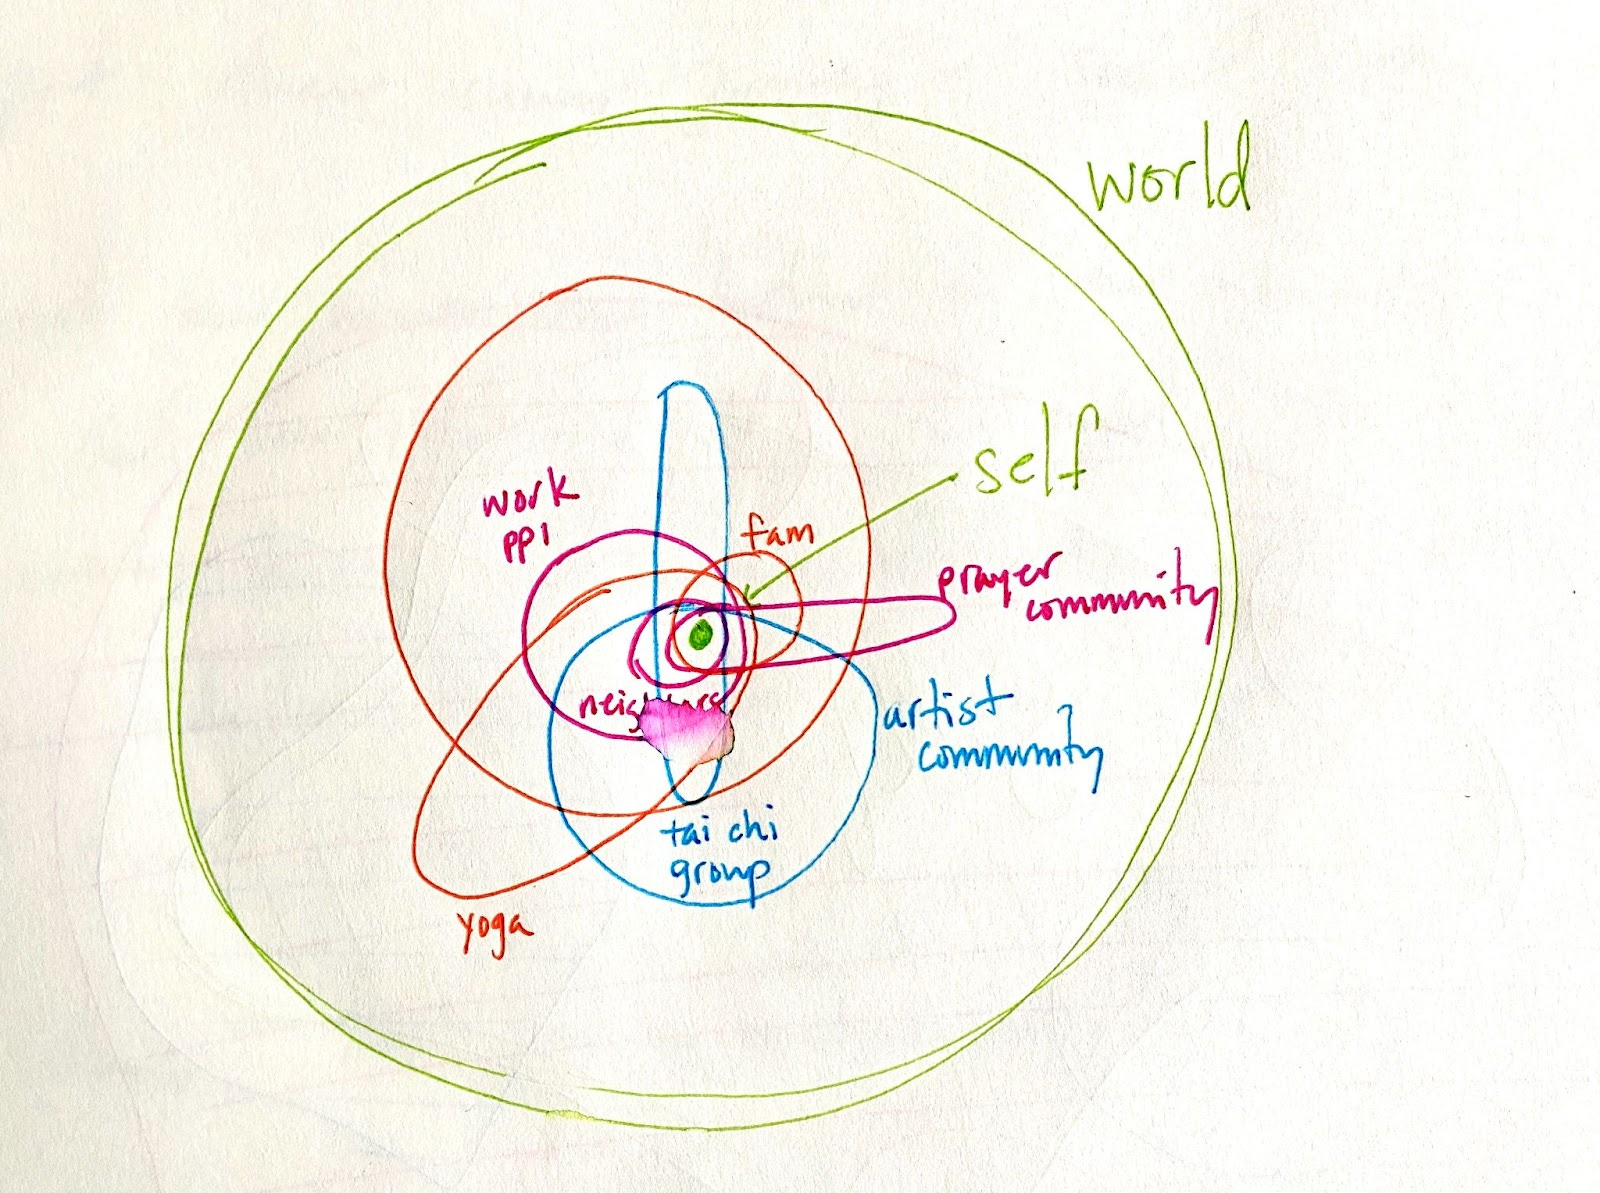 world
self
work
ppl
fam
prayer
community
artist
community
tai chi
group
yoga